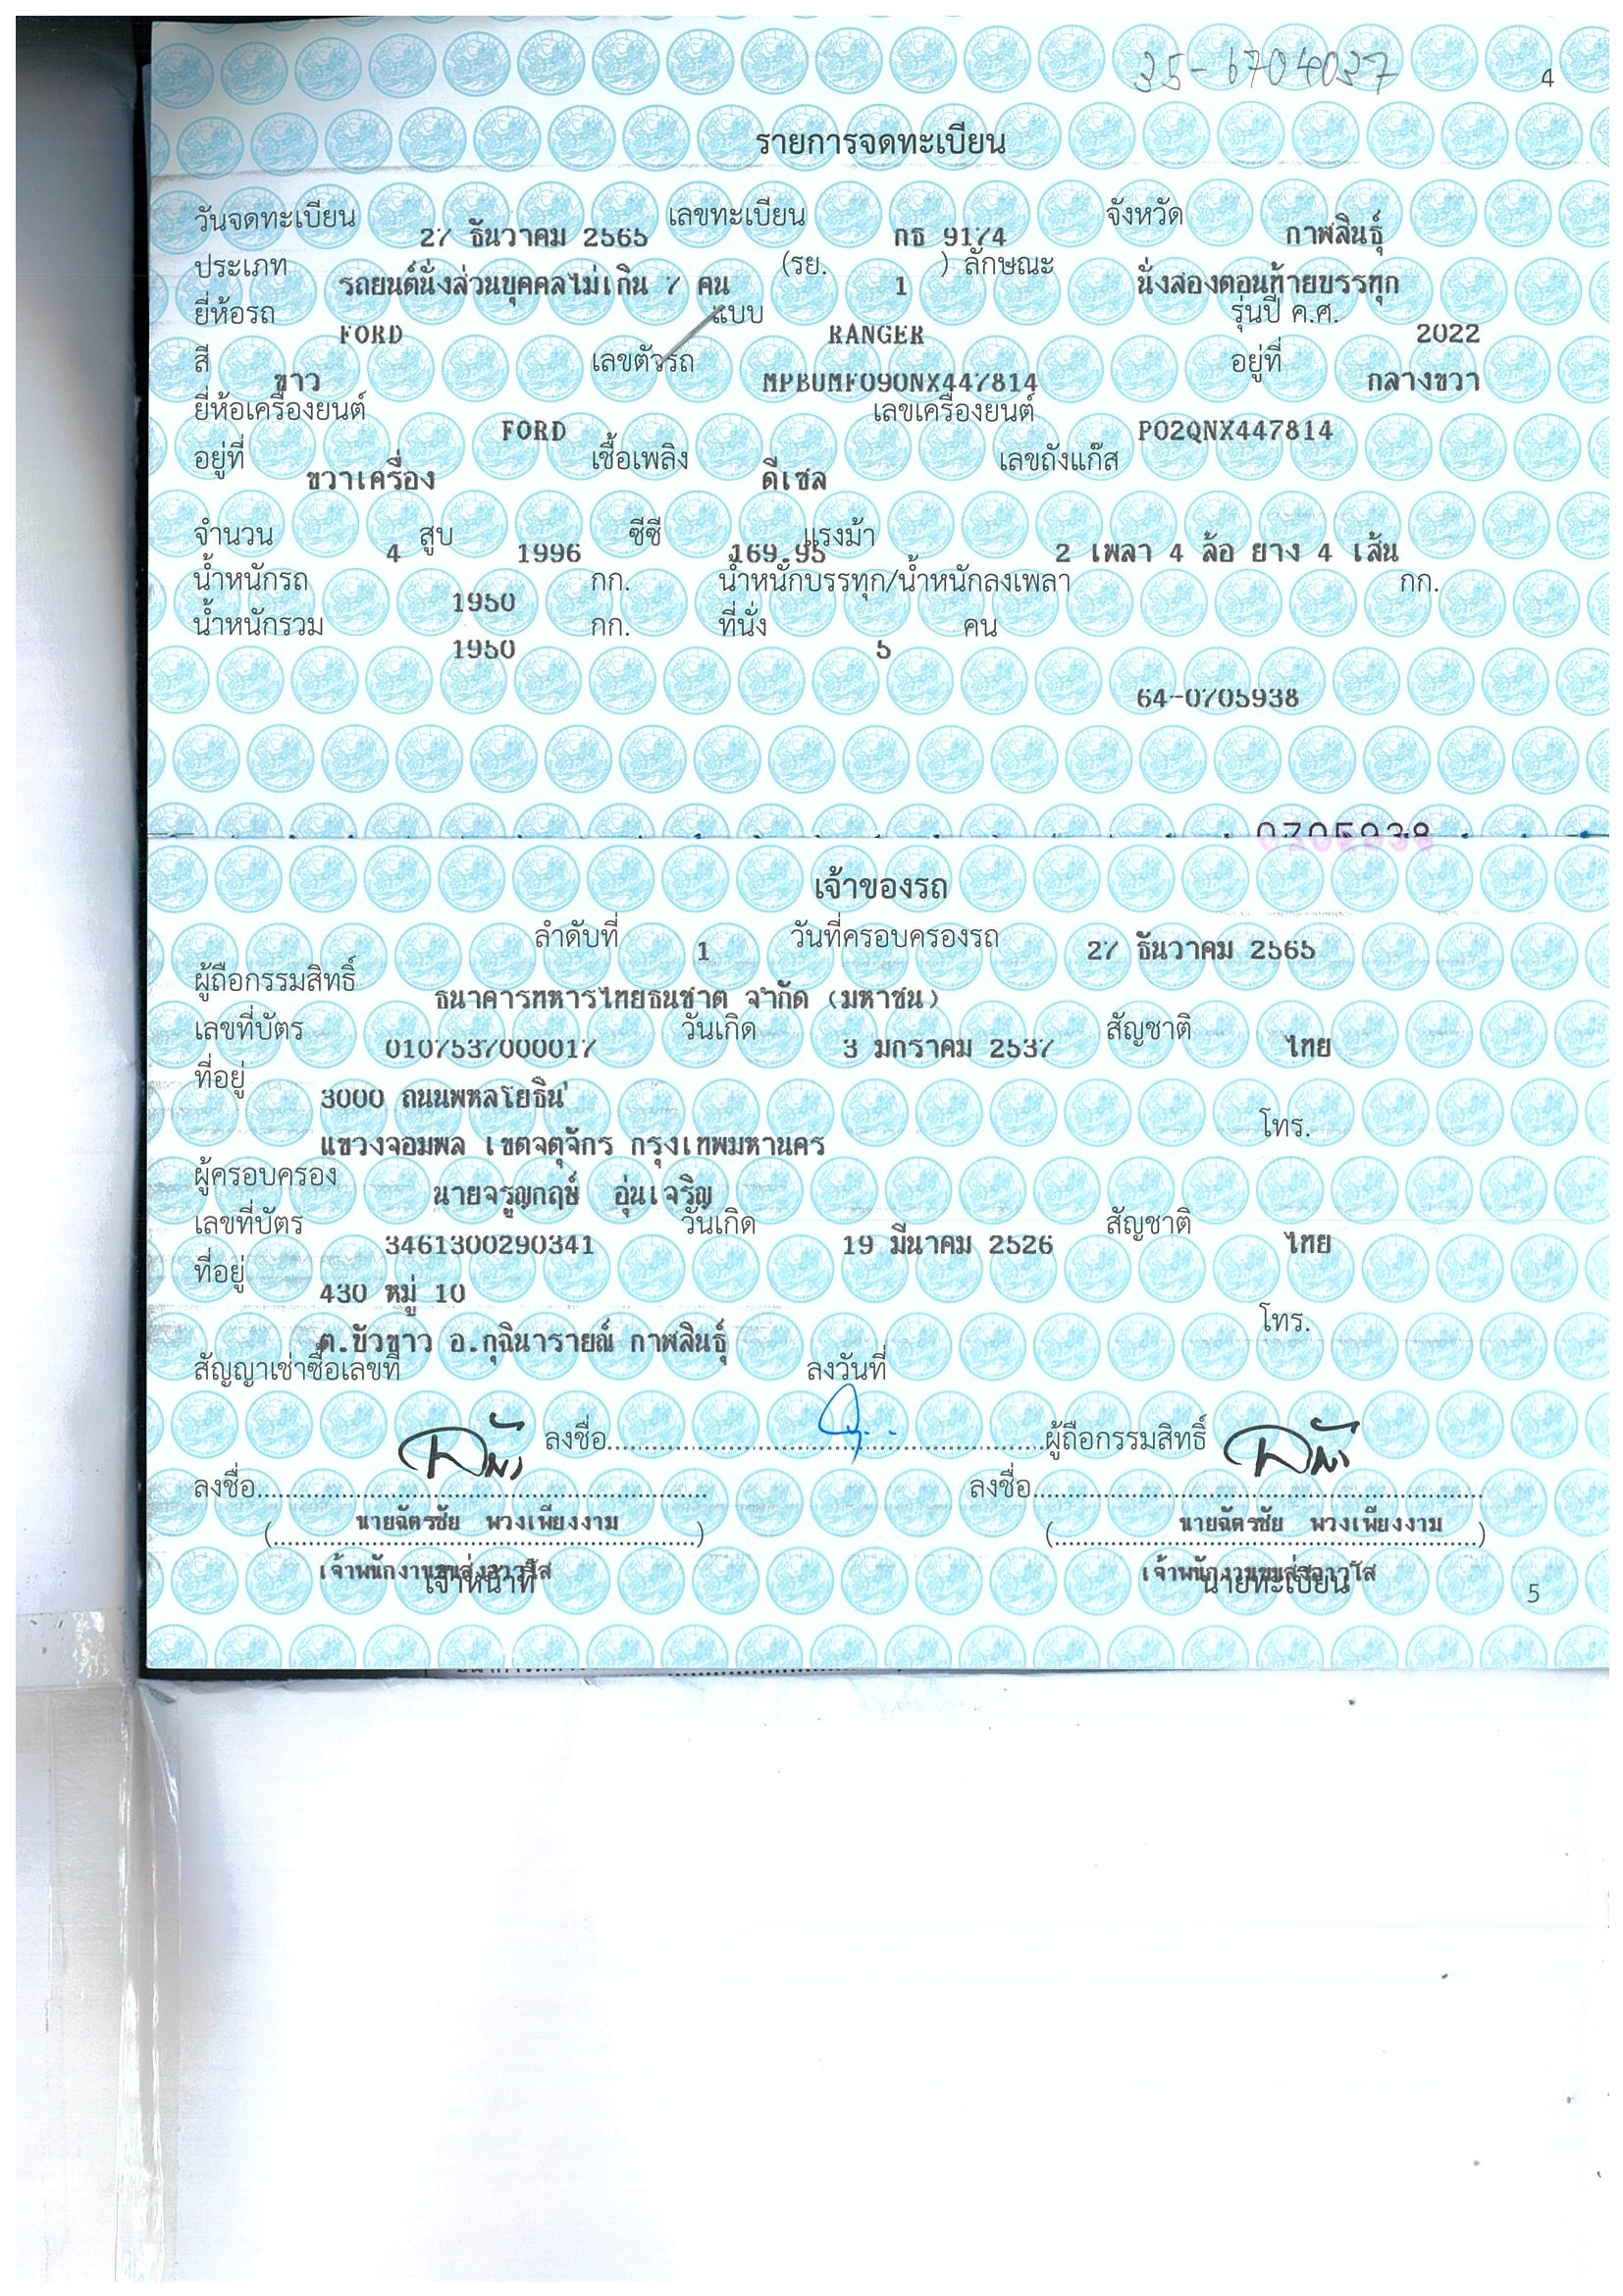 35-6704037
4
รายการจดทะเบียน
วันจดทะเบียน 27 ธันวาคม 2565 เลขทะเบียน กธ 9174 จังหวัด กาฬสินธุ์
ประเภท รถยนต์นั่งส่วนบุคคลไม่เกิน 7 คน (รย. 1 ) ลักษณะ นั่งสองตอนท้ายบรรทุก
ยี่ห้อรถ FORD แบบ RANGER รุ่นปี ค.ศ. 2022
สี ขาว เลขตัวรถ MPBUMF090NX447814 อยู่ที่ กลางขวา
ยี่ห้อเครื่องยนต์ FORD เลขเครื่องยนต์ P02QNX447814
อยู่ที่ ขวาเครื่อง เชื้อเพลิง ดีเซล เลขถังแก๊ส
จำนวน 4 สูบ 1996 ซีซี 169.95 แรงม้า 2 เพลา 4 ล้อ ยาง 4 เส้น
น้ำหนักรถ 1950 กก. น้ำหนักบรรทุก/น้ำหนักลงเพลา กก.
น้ำหนักรวม 1950 กก. ที่นั่ง 5 คน
64-0705938
0705938
เจ้าของรถ
ลำดับที่ 1 วันที่ครอบครองรถ 27 ธันวาคม 2565
ผู้ถือกรรมสิทธิ์ ธนาคารทหารไทยธนชาต จำกัด (มหาชน)
เลขที่บัตร 0107537000017 วันเกิด 3 มกราคม 2537 สัญชาติ ไทย
ที่อยู่ 3000 ถนนพหลโยธิน
แขวงจอมพล เขตจตุจักร กรุงเทพมหานคร โทร.
ผู้ครอบครอง นายจรูญกฤษ์ อุ่นเจริญ
เลขที่บัตร 3461300290341 วันเกิด 19 มีนาคม 2526 สัญชาติ ไทย
ที่อยู่ 430 หมู่ 10
ต.บัวขาว อ.กุฉินารายณ์ กาฬสินธุ์ โทร.
สัญญาเช่าซื้อเลขที่ ลงวันที่
ลงชื่อ ผู้ถือกรรมสิทธิ์
ลงชื่อ ลงชื่อ
(นายฉัตรชัย พวงเพียงงาม) (นายฉัตรชัย พวงเพียงงาม)
เจ้าพนักงานขนส่งอาวุโส เจ้าพนักงานขนส่งอาวุโส
เจ้าหน้าที่ นายทะเบียน
5